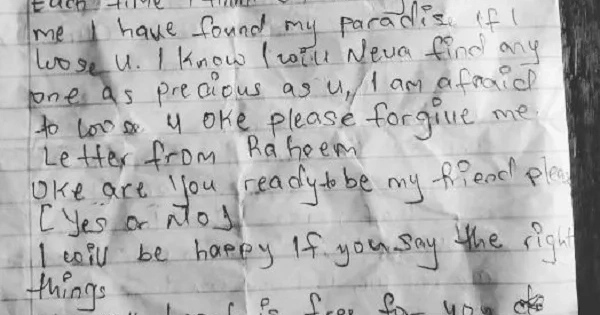 Each time I
me I have found my paradise If I
loose u. I know I will Neva find any
one as precious as u, I am afraid
to loose u oke please forgive me
Letter from Raheem
Oke are you ready to be my friend pleas
[Yes or No]
I will be happy If you say the right
things
is free for you